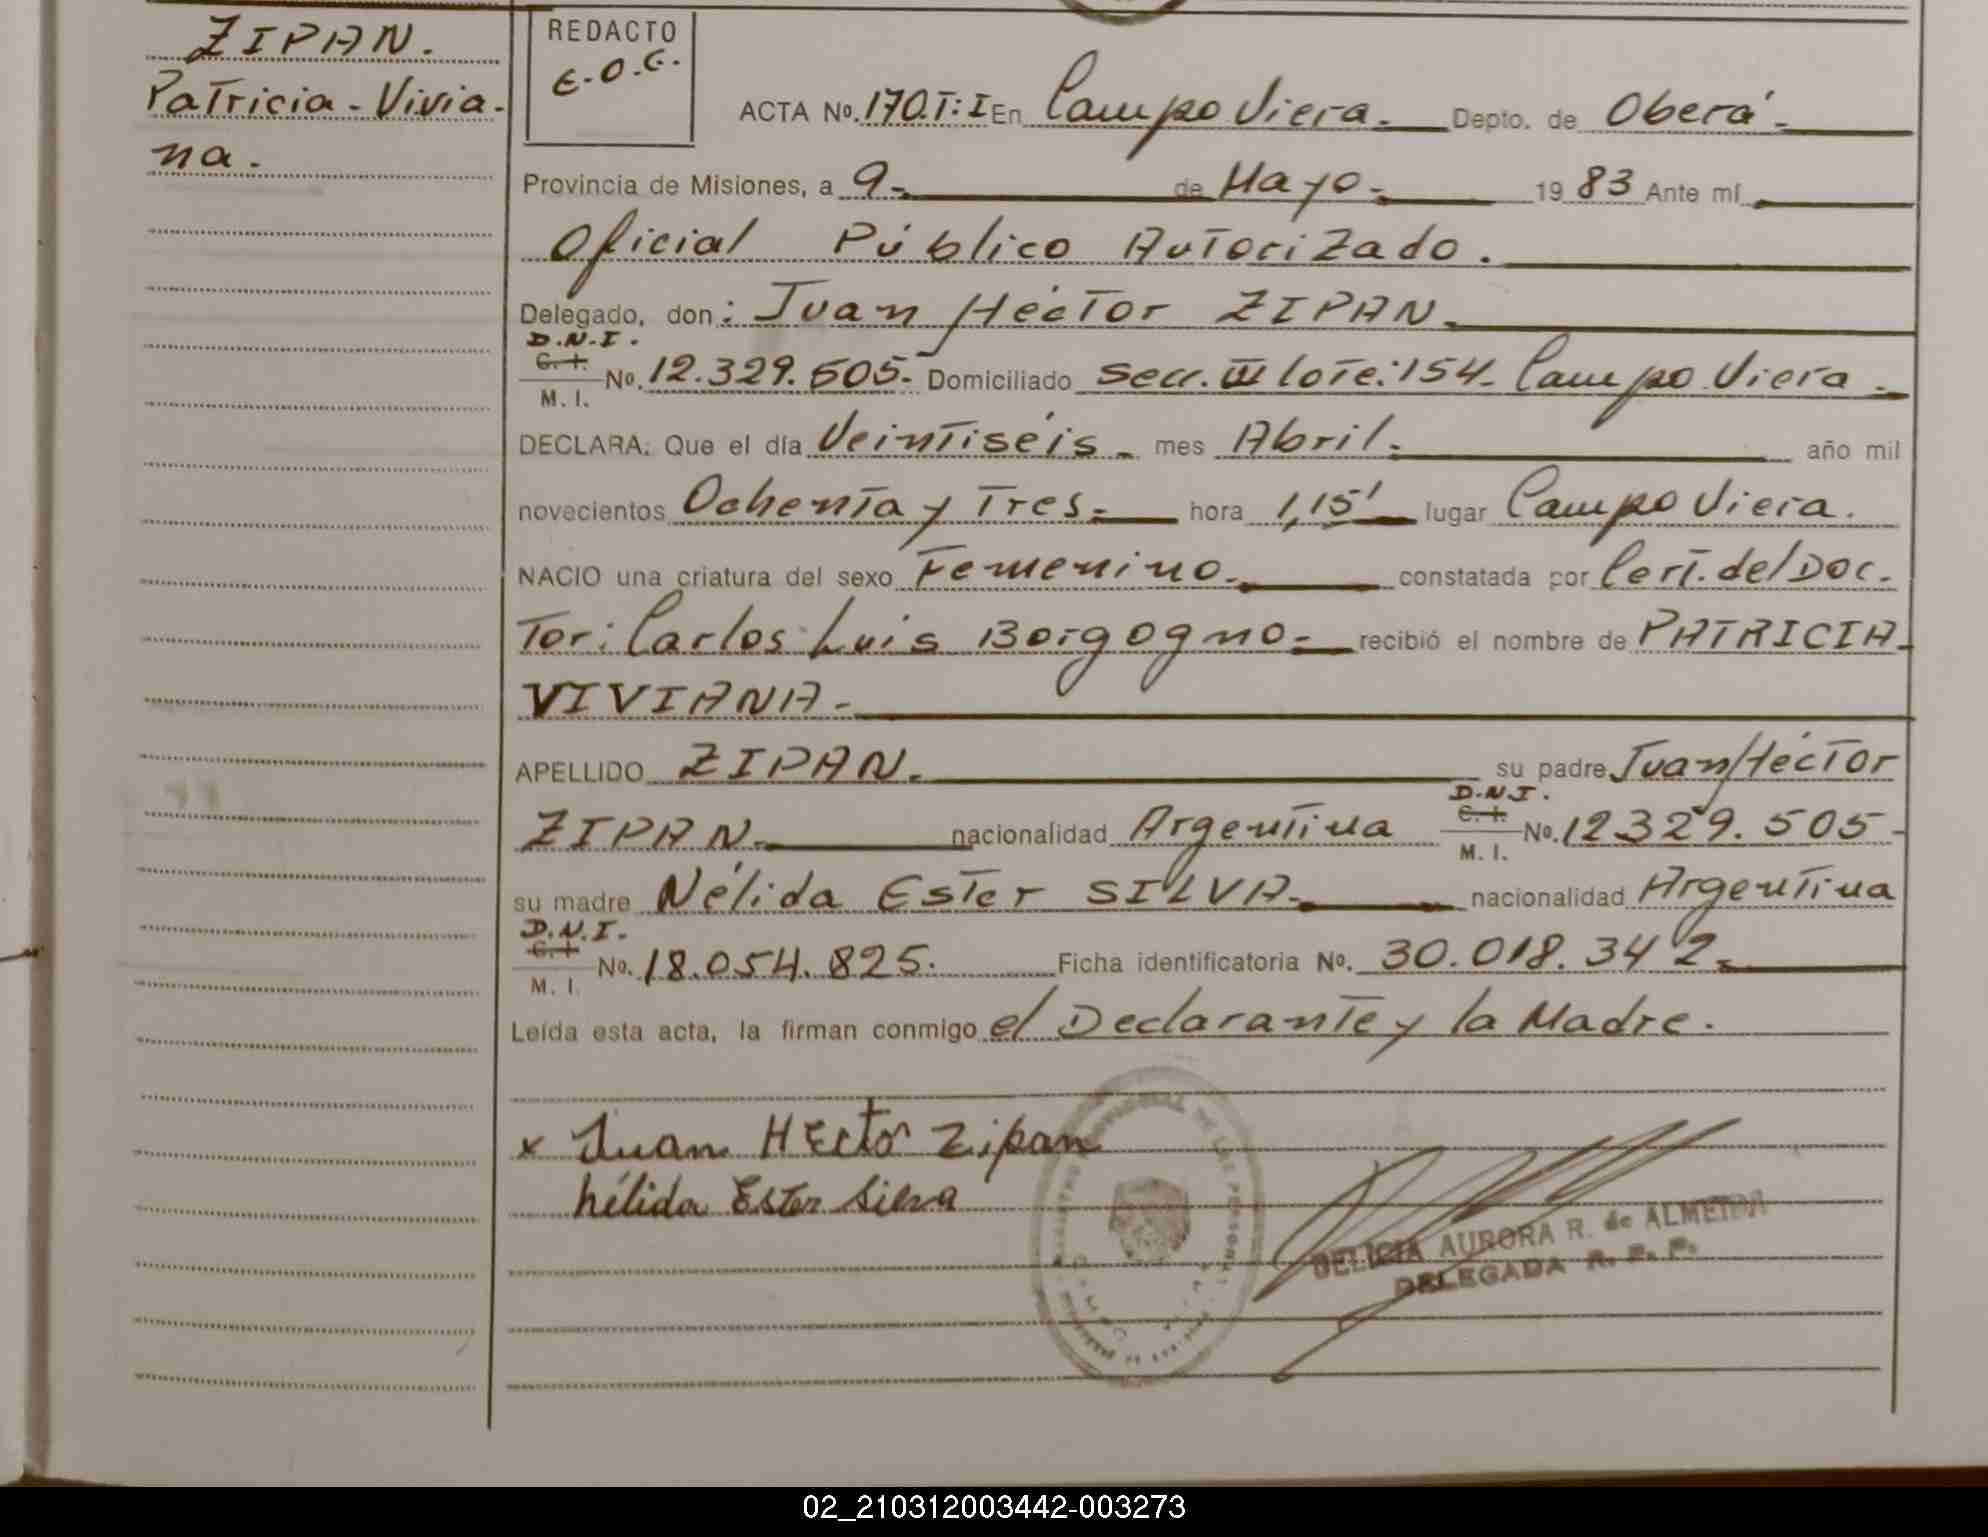 ZIPAN.
Patricia - Vivia-
na.
REDACTO
E.O.G.
ACTA No. 170.T: I En Campo Viera. Depto. de Oberá -
Provincia de Misiones, a 9- de Mayo- 1983 Ante mí
Oficial Público Autorizado.
Delegado, don: Juan Héctor ZIPAN.
D.N.I.
C. I.
M. I. No. 12.329.505.- Domiciliado Secc. III lote: 154- Campo Viera -
DECLARA: Que el día Veintiséis - mes Abril. año mil
novecientos Ochenta y Tres.- hora 1,15' lugar Campo Viera.
NACIO una criatura del sexo Femenino. constatada por Cert. del Doc.
Tor: Carlos Luis Borgogno- recibió el nombre de PATRICIA-
VIVIANA-
APELLIDO ZIPAN. su padre Juan Héctor
ZIPAN. nacionalidad Argentina D.N.I. C. I. M. I. No. 12329.505-
su madre Nélida Ester SILVA- nacionalidad Argentina
D.N.I.
C. I.
M. I. No. 18.054.825. Ficha identificatoria No. 30.018.342-
Leída esta acta, la firman conmigo el Declarante y la Madre.
x Juan HEctor Zipan
Nélida Ester Silva
DELICIA AURORA R. de ALMEIDA
DELEGADA R. P. P.
02_210312003442-003273